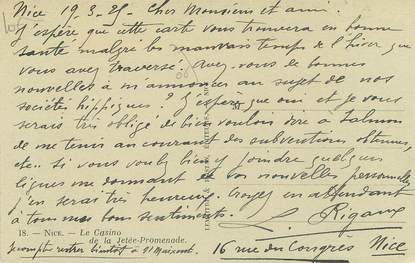 Nice 19.3.29 - Cher Monsieur et ami
J'espère que cette carte vous trouvera en bonne
santé malgré les mauvais temps de l'hiver que
vous avez traversé. Avez-vous de bonnes
nouvelles à m'annoncer au sujet de nos
sociétés hippiques? J'espère que oui et je vous
serais très obligé de bien vouloir dire à Salmon
de me tenir au courant des subventions obtenues,
etc.. si vous voulez bien y joindre quelques
lignes me donnant de vos nouvelles personnelles
j'en serai très heureux. Croyez en attendant
à tous mes bons sentiments. L. Rigaux
18. - NICE. - Le Casino
de la Jetée-Promenade.
Je compte rentrer bientôt à St Maixent
16 rue du Congrès Nice